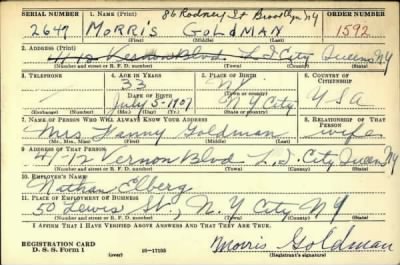 SERIAL NUMBER 1. NAME (Print) 86 Rodney St Brooklyn NY ORDER NUMBER
2647 MORRIS GOLDMAN 1592
(First) (Middle) (Last)
2. ADDRESS (Print)
41-12 Vernon Blvd L.I. City Queens NY
(Number and street or R. F. D. number) (Town) (County) (State)
3. TELEPHONE 4. AGE IN YEARS 5. PLACE OF BIRTH 6. COUNTRY OF CITIZENSHIP
33 NY
DATE OF BIRTH (Town or county)
July 5-1907 NY City USA
(Exchange) (Number) (Mo.) (Day) (Yr.) (State or country)
7. NAME OF PERSON WHO WILL ALWAYS KNOW YOUR ADDRESS 8. RELATIONSHIP OF THAT PERSON
Mrs. Fanny Goldman wife
(Mr., Mrs., Miss) (First) (Middle) (Last)
9. ADDRESS OF THAT PERSON
41-12 Vernon Blvd L.I. City Queens NY
(Number and street or R. F. D. number) (Town) (County) (State)
10. EMPLOYER'S NAME
Nathan Elberg
11. PLACE OF EMPLOYMENT OR BUSINESS
50 Lewis St, N.Y City NY
(Number and street or R. F. D. number) (Town) (County) (State)
I AFFIRM THAT I HAVE VERIFIED ABOVE ANSWERS AND THAT THEY ARE TRUE.
REGISTRATION CARD
D. S. S. Form 1 (over) 16-17105 Morris Goldman
(Registrant's signature)